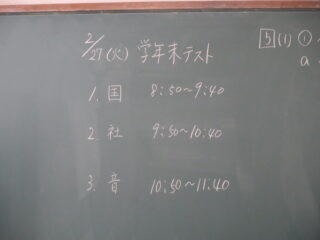 2/27(火) 学年末テスト
1. 国 8:50~9:40
2. 社 9:50~10:40
3. 音 10:50~11:40
5 (1) ①
a